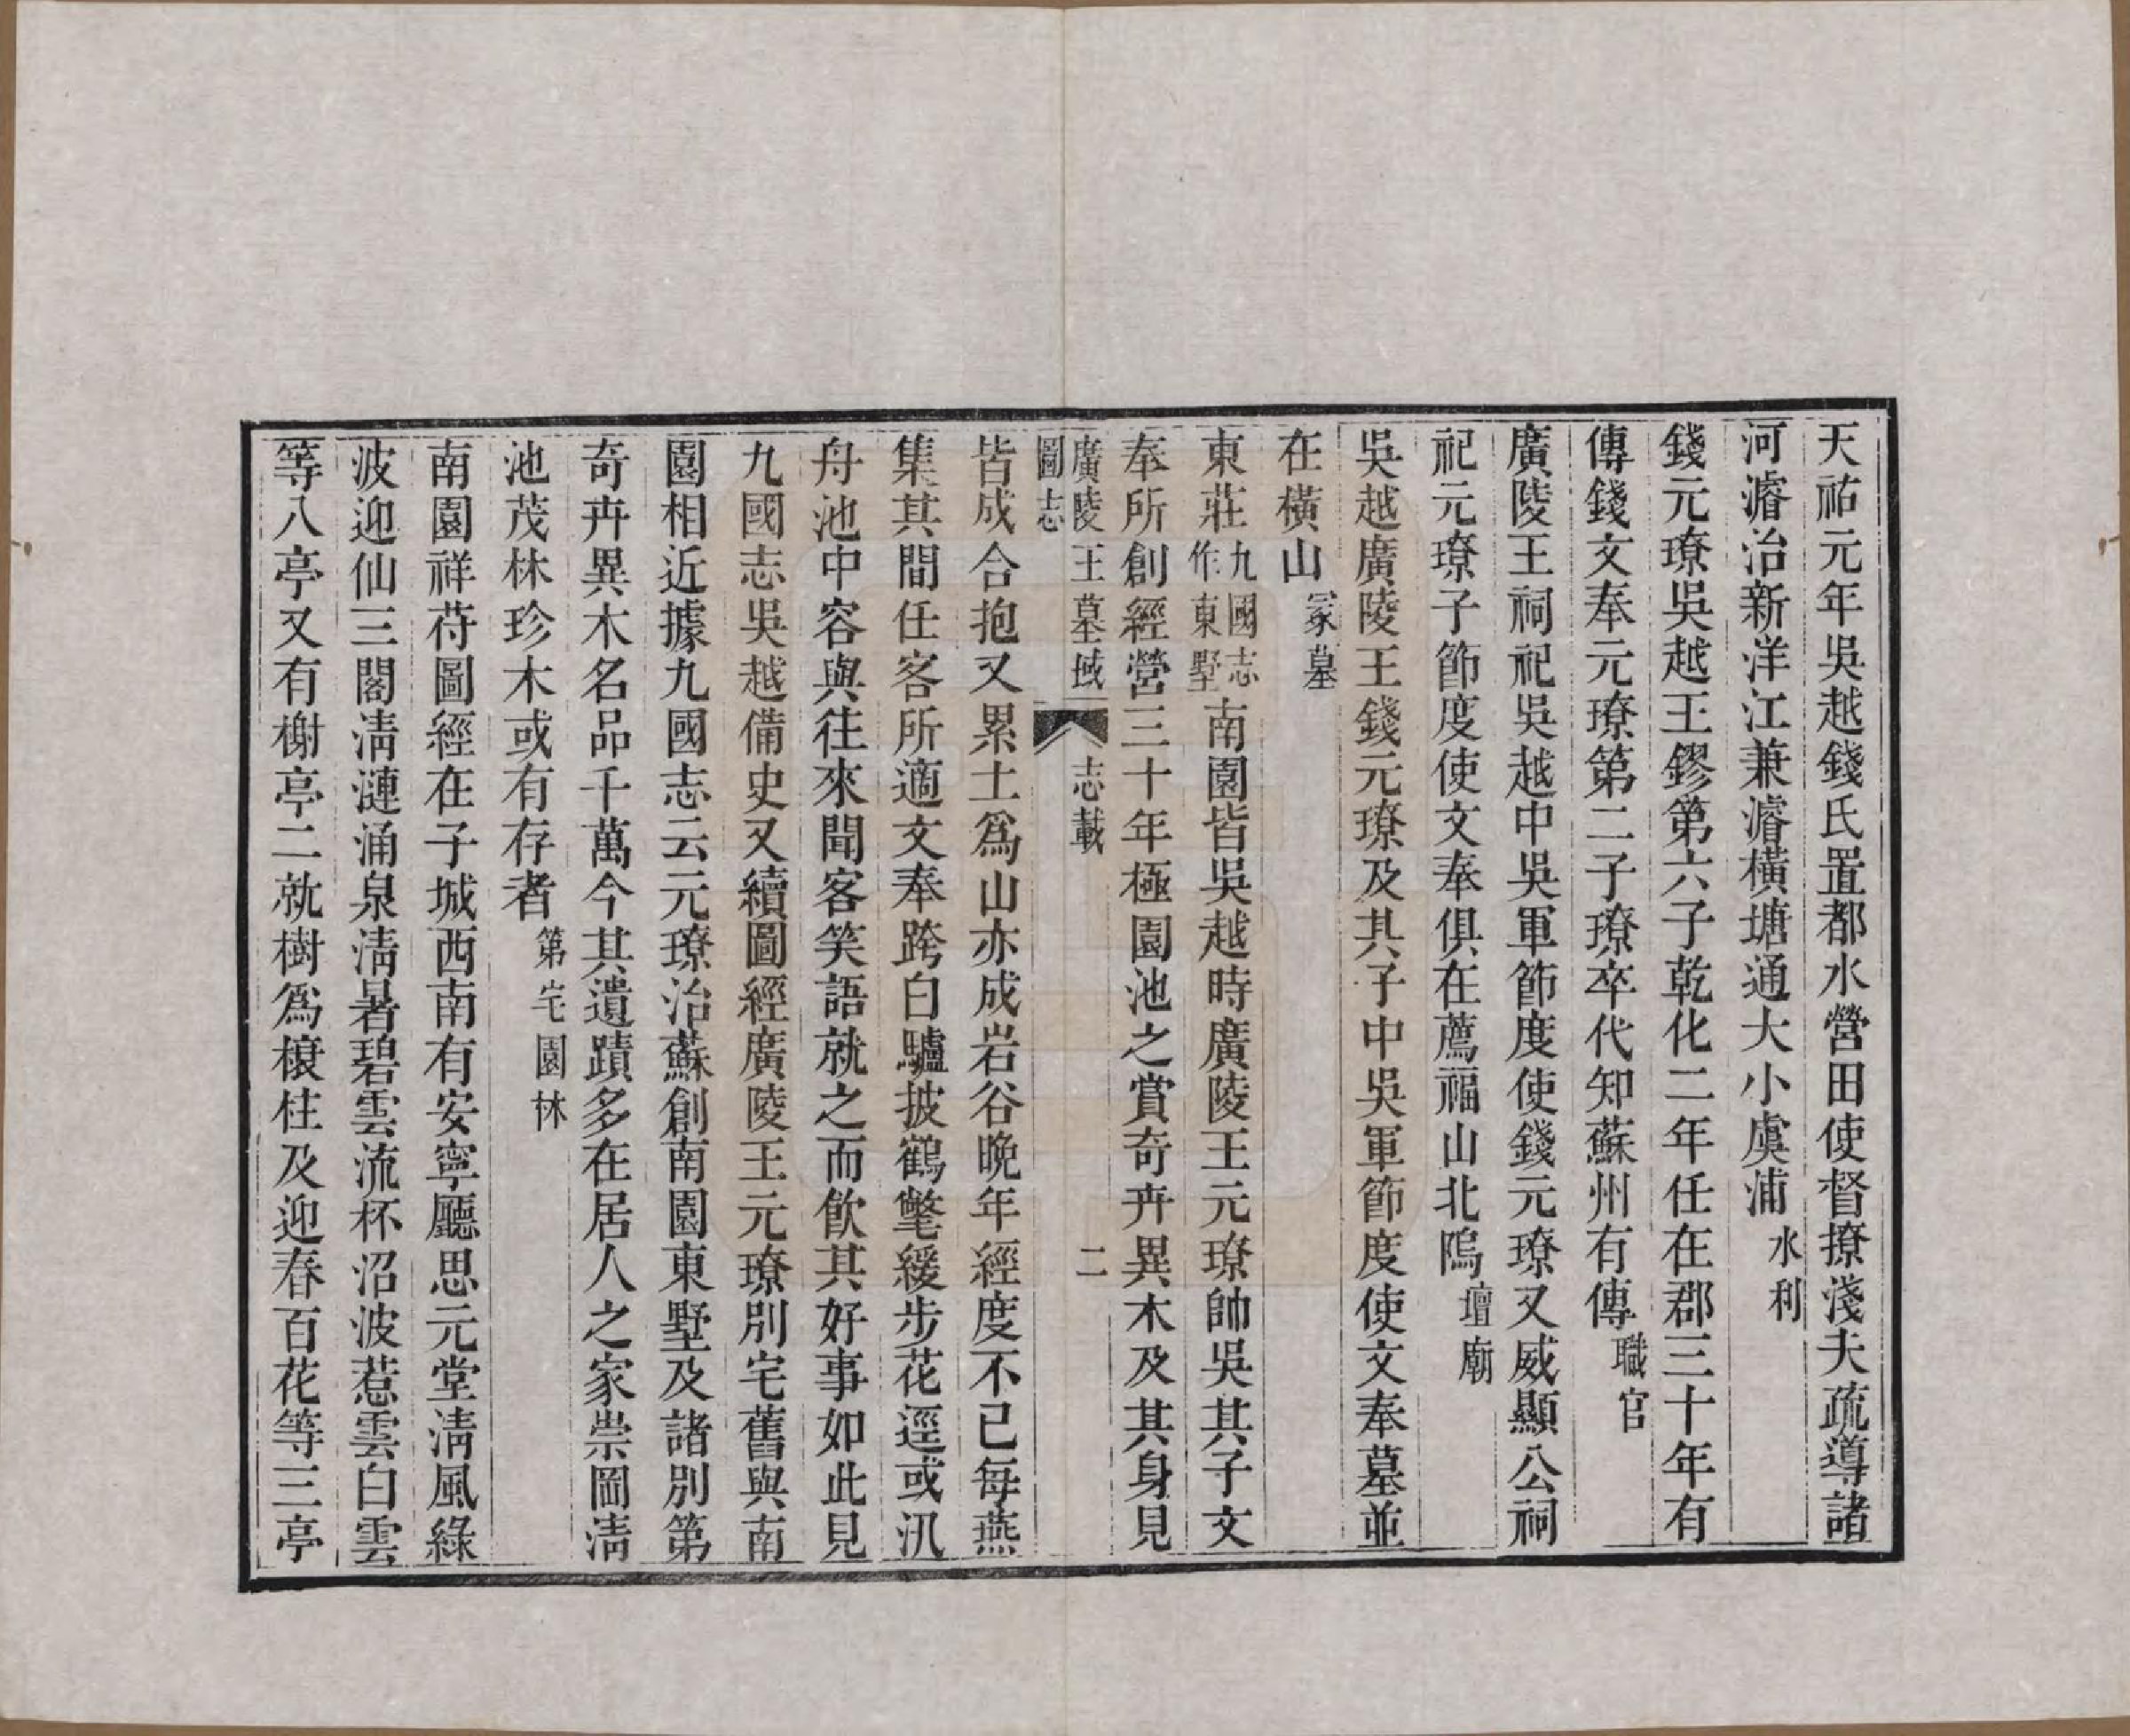 天祐元年吳越錢氏置都水營田使督撩淺夫疏導諸
河濬治新洋江兼濬橫塘通大小虞浦水利
錢元璙吳越王鏐第六子乾化二年任在郡三十年有
傳錢文奉元璙第二子璙卒代知蘇州有傳職官
廣陵王祠祀吳越中吳軍節度使錢元璙又威顯公祠
祀元璙子節度使文奉俱在薦福山北隖壇廟
吳越廣陵王錢元璙及其子中吳軍節度使文奉墓並
在橫山冡墓
東莊九國志作東墅南園皆吳越時廣陵王元璙帥吳其子文
奉所創經營三十年極園池之賞奇卉異木及其身見
廣陵王墓域圖志 志載 二
皆成合抱又累土爲山亦成岩谷晚年經度不已每燕
集其間任客所適文奉跨白驢披鶴氅緩步花逕或汎
舟池中容與往來聞客笑語就之而飲其好事如此見
九國志吳越備史又續圖經廣陵王元璙別宅舊與南
園相近據九國志云元璙治蘇創南園東墅及諸別第
奇卉異木名品千萬今其遺蹟多在居人之家崇岡淸
池茂林珍木或有存者第宅園林
南園祥苻圖經在子城西南有安寧廳思元堂淸風綠
波迎仙三閣淸漣涌泉淸暑碧雲流杯沼波惹雲白雲
等八亭又有榭亭二就樹爲榱柱及迎春百花等三亭